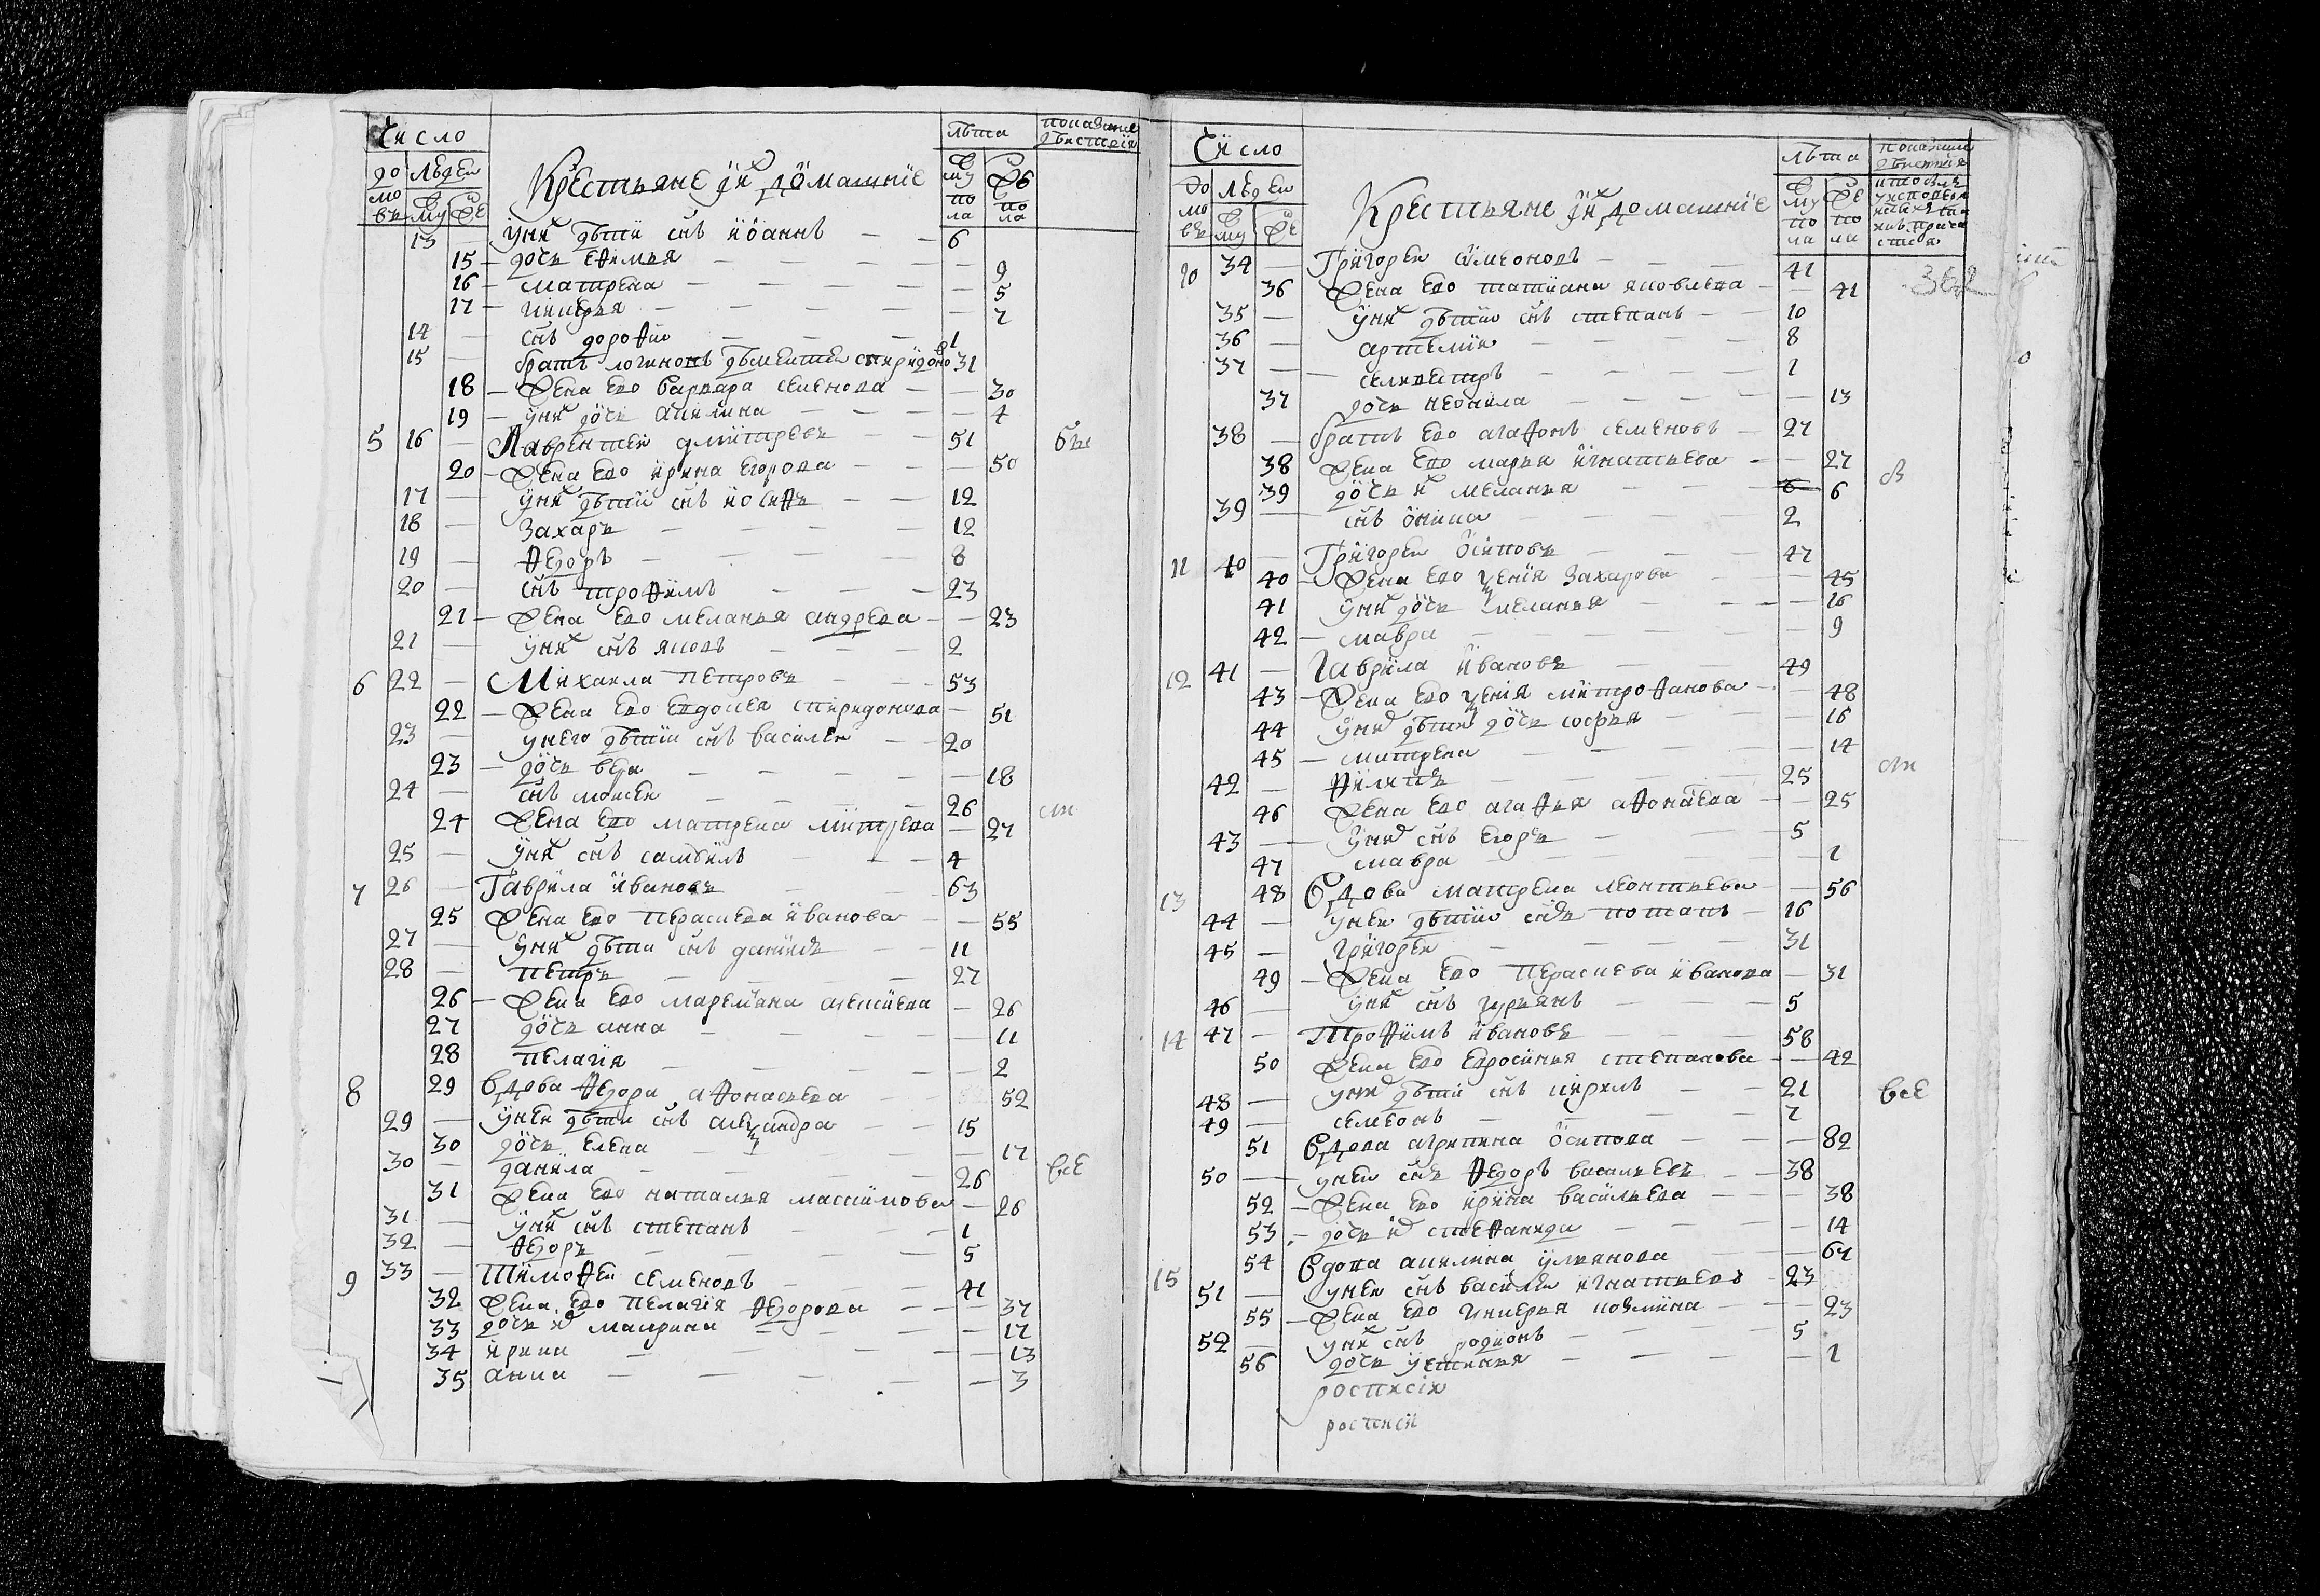 Число
лѣта
показание
дѣиствия
до мо въ
людеи
му
же
Крестьяне и их домашние
му по ла
же по ла
13 — у них дѣти снъ иоаннъ — 6
15 — дочь ефимья — 9
16 — матрена — 5
17 — гликерья — 2
14 — снъ дорофеи — 1
15 — братъ логинонъ дементеи спиридоно 31
18 — жена ево варвара семенова — 30
19 — у них дочь акилина — 4
5 16 — Лаврентеи дмитревъ — 51
20 — жена ево ирина егорова — 50
17 — у них дѣти снъ иосифъ — 12
18 — захаръ — 12
19 — ѳедоръ — 8
20 — снъ трофимъ — 23
21 — жена ево меланья андрева — 23
21 — у них снъ яковъ — 2
6 22 — Михаила петровъ — 53
22 — жена ево евдокея спиридонова — 51
23 — у него дѣти снъ василеи — 20
23 — дочь веза — 18
24 — снъ моисеи — 26
24 жена ево матрена митрева — 27
25 — у них снъ самоилъ — 4
7 26 — Гаврила ивановъ — 63
25 жена ево перасковя иванова — 55
27 — у них дѣти снъ данилъ — 11
28 — петръ — 27
26 — жена ево маремьяна алексиева — 26
27 дочь анна — 11
28 пелагия — 2
8 29 вдова ѳедора афонасьева — 52
29 — у неи дѣти снъ александра — 15
30 дочь елена — 17
30 — данила — 26 все
31 жена ево наталья максимова — 26
31 — у них снъ степанъ — 1
32 — ѳедоръ — 5
9 33 — Тимофеи семеновъ — 41
32 жена ево пелагия ѳедорова — 37
33 дочь их маирина — 17
34 ирина — 13
35 анна — 3
Число
лѣта
показание
дѣиствия
до мо въ
людеи
му
же
Крестьяне и их домашние
му по ла
же по ла
10 34 — Григореи симеоновъ — 41
36 жена ево татиана яковлева — 41
35 — у них дѣти снъ степанъ — 10
36 — артемии — 8
37 — селивестръ — 1
37 дочь неонила — 13
38 — братъ ево агафонъ семеновъ — 27
38 жена ево марья игнатьева — 27
39 дочь их меланья — 6 6
39 — снъ оника — 2
11 40 — Григореи осиповъ — 47
40 — жена ево ксения захарова — 45
41 у них дочь меланья — 16
42 — мавра — 9
12 41 — Гаврила ивановъ — 49
43 — жена ево ксения митрофанова — 48
44 у них дѣти дочь софья — 16
45 — матрена — 14
42 — филипъ — 25
46 жена ево агафья афонасева — 25
43 — у них снъ егоръ — 5
47 мавра — 1
13 48 вдова матрена леонтьева — 56
44 — у неи дѣти снъ потапъ — 16
45 — григореи — 31
49 — жена ево перасковя иванова — 31
46 — у них снъ гурьянъ — 5
14 47 — Трофимъ ивановъ — 58
50 жена ево евросинья степанова — 42
48 — у них дѣти снъ кирилъ — 21 все
49 — семеонъ — 2
51 вдова агрипина осипова — 82
50 — у неи снъ ѳедоръ василевъ — 38
52 — жена ево ирина васильева — 38
53 — дочь их стефанида — 14
54 вдова акилина ульянова — 67
15 51 — у неи снъ василеи игнатьевъ — 23
55 — жена ево гликерья козмина — 23
52 — у них снъ родионъ — 5
56 дочь устинья — 1
росписия
росписи